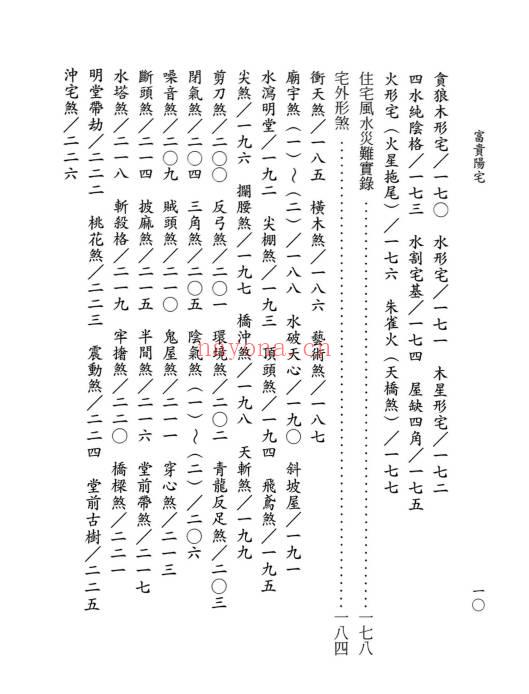 富貴陽宅
一〇
貪狼木形宅／一七〇　水形宅／一七一　木星形宅／一七二
四水純陰格／一七三　水割宅基／一七四　屋缺四角／一七五
火形宅（火星拖尾）／一七六　朱雀火（天橋煞）／一七七
住宅風水災難實錄……一七八
宅外形煞……一八四
衝天煞／一八五　橫木煞／一八六　藝術煞／一八七
廟宇煞（一）～（二）／一八八　水破天心／一九〇　斜坡屋／一九一
水瀉明堂／一九二　尖棚煞／一九三　頂頭煞／一九四　飛鳶煞／一九五
尖煞／一九六　攔腰煞／一九七　橋沖煞／一九八　天斬煞／一九九
剪刀煞／二〇〇　反弓煞／二〇一　環境煞／二〇二　青龍反足煞／二〇三
閉氣煞／二〇四　三角煞／二〇五　陰氣煞（一）～（二）／二〇六
噪音煞／二〇九　賊頭煞／二一〇　鬼屋煞／二一一　穿心煞／二一三
斷頭煞／二一四　披麻煞／二一五　半間煞／二一六　堂前帶煞／二一七
水塔煞／二一八　斬殺格／二一九　牢擔煞／二二〇　橋樑煞／二二一
明堂帶劫／二二二　桃花煞／二二三　震動煞／二二四　堂前古樹／二二五
沖宅煞／二二六
naybna.cn